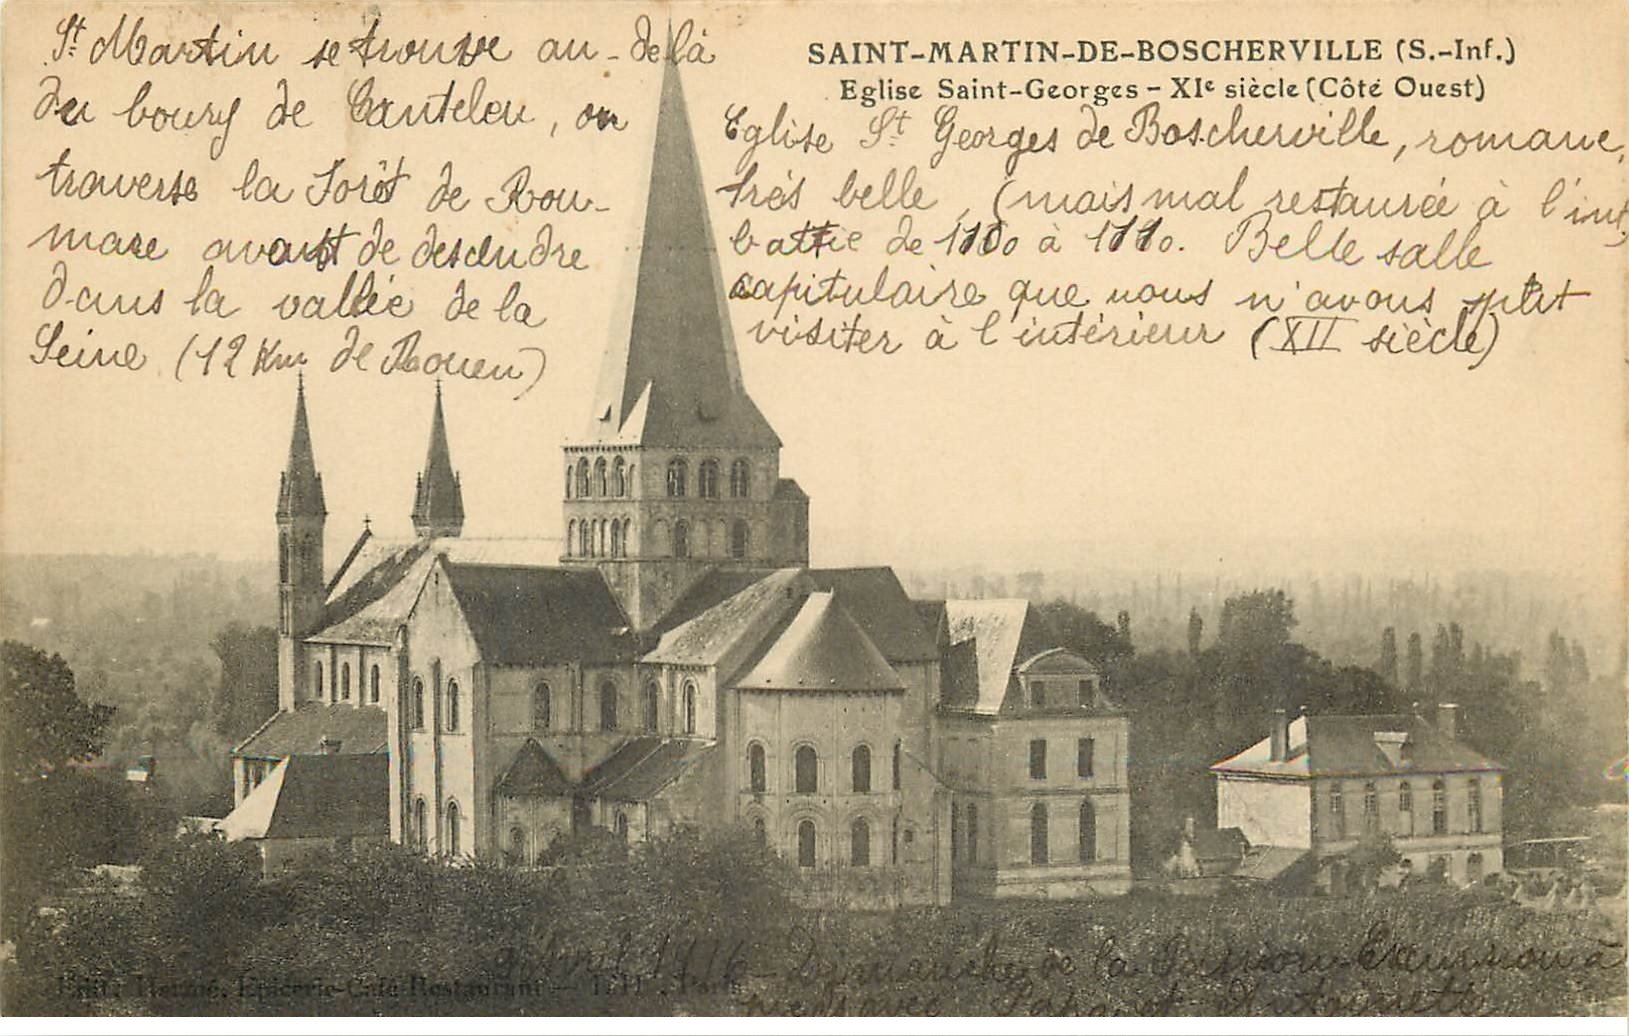 St Martin se trouve au-delà
du bourg de Canteleu, on
traverse la Forêt de Rou-
mare avant de descendre
dans la vallée de la
Seine (12 Km de Rouen)
SAINT-MARTIN-DE-BOSCHERVILLE (S.-Inf.)
Eglise Saint-Georges - XIe siècle (Côté Ouest)
Eglise St Georges de Boscherville, romane,
très belle, (mais mal restaurée à l'int.)
battie de à Belle salle
capitulaire que nous n'avons put
visiter à l'intérieur (XII siècle)
Avril 1916 - Dimanche de la Passion - Excursion à
pieds avec Papa et Antoinette
Edit. Epicerie-Café-Restaurant - Paris